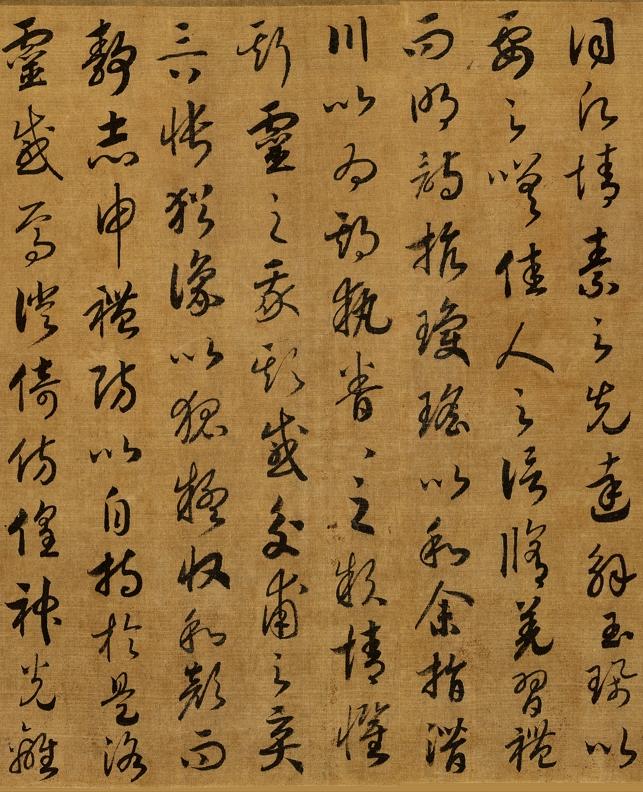 情素之先達解玉珮以
要之嗟佳人之信脩羌習禮
而明詩抗瓊瑤以和余指潛
川以為期執眷〻之款情懼
斯靈之我欺感交甫之棄
言悵猶豫以狐疑收和顏而
靜志申禮防以自持於是洛
靈感焉徙倚仿偟神光離